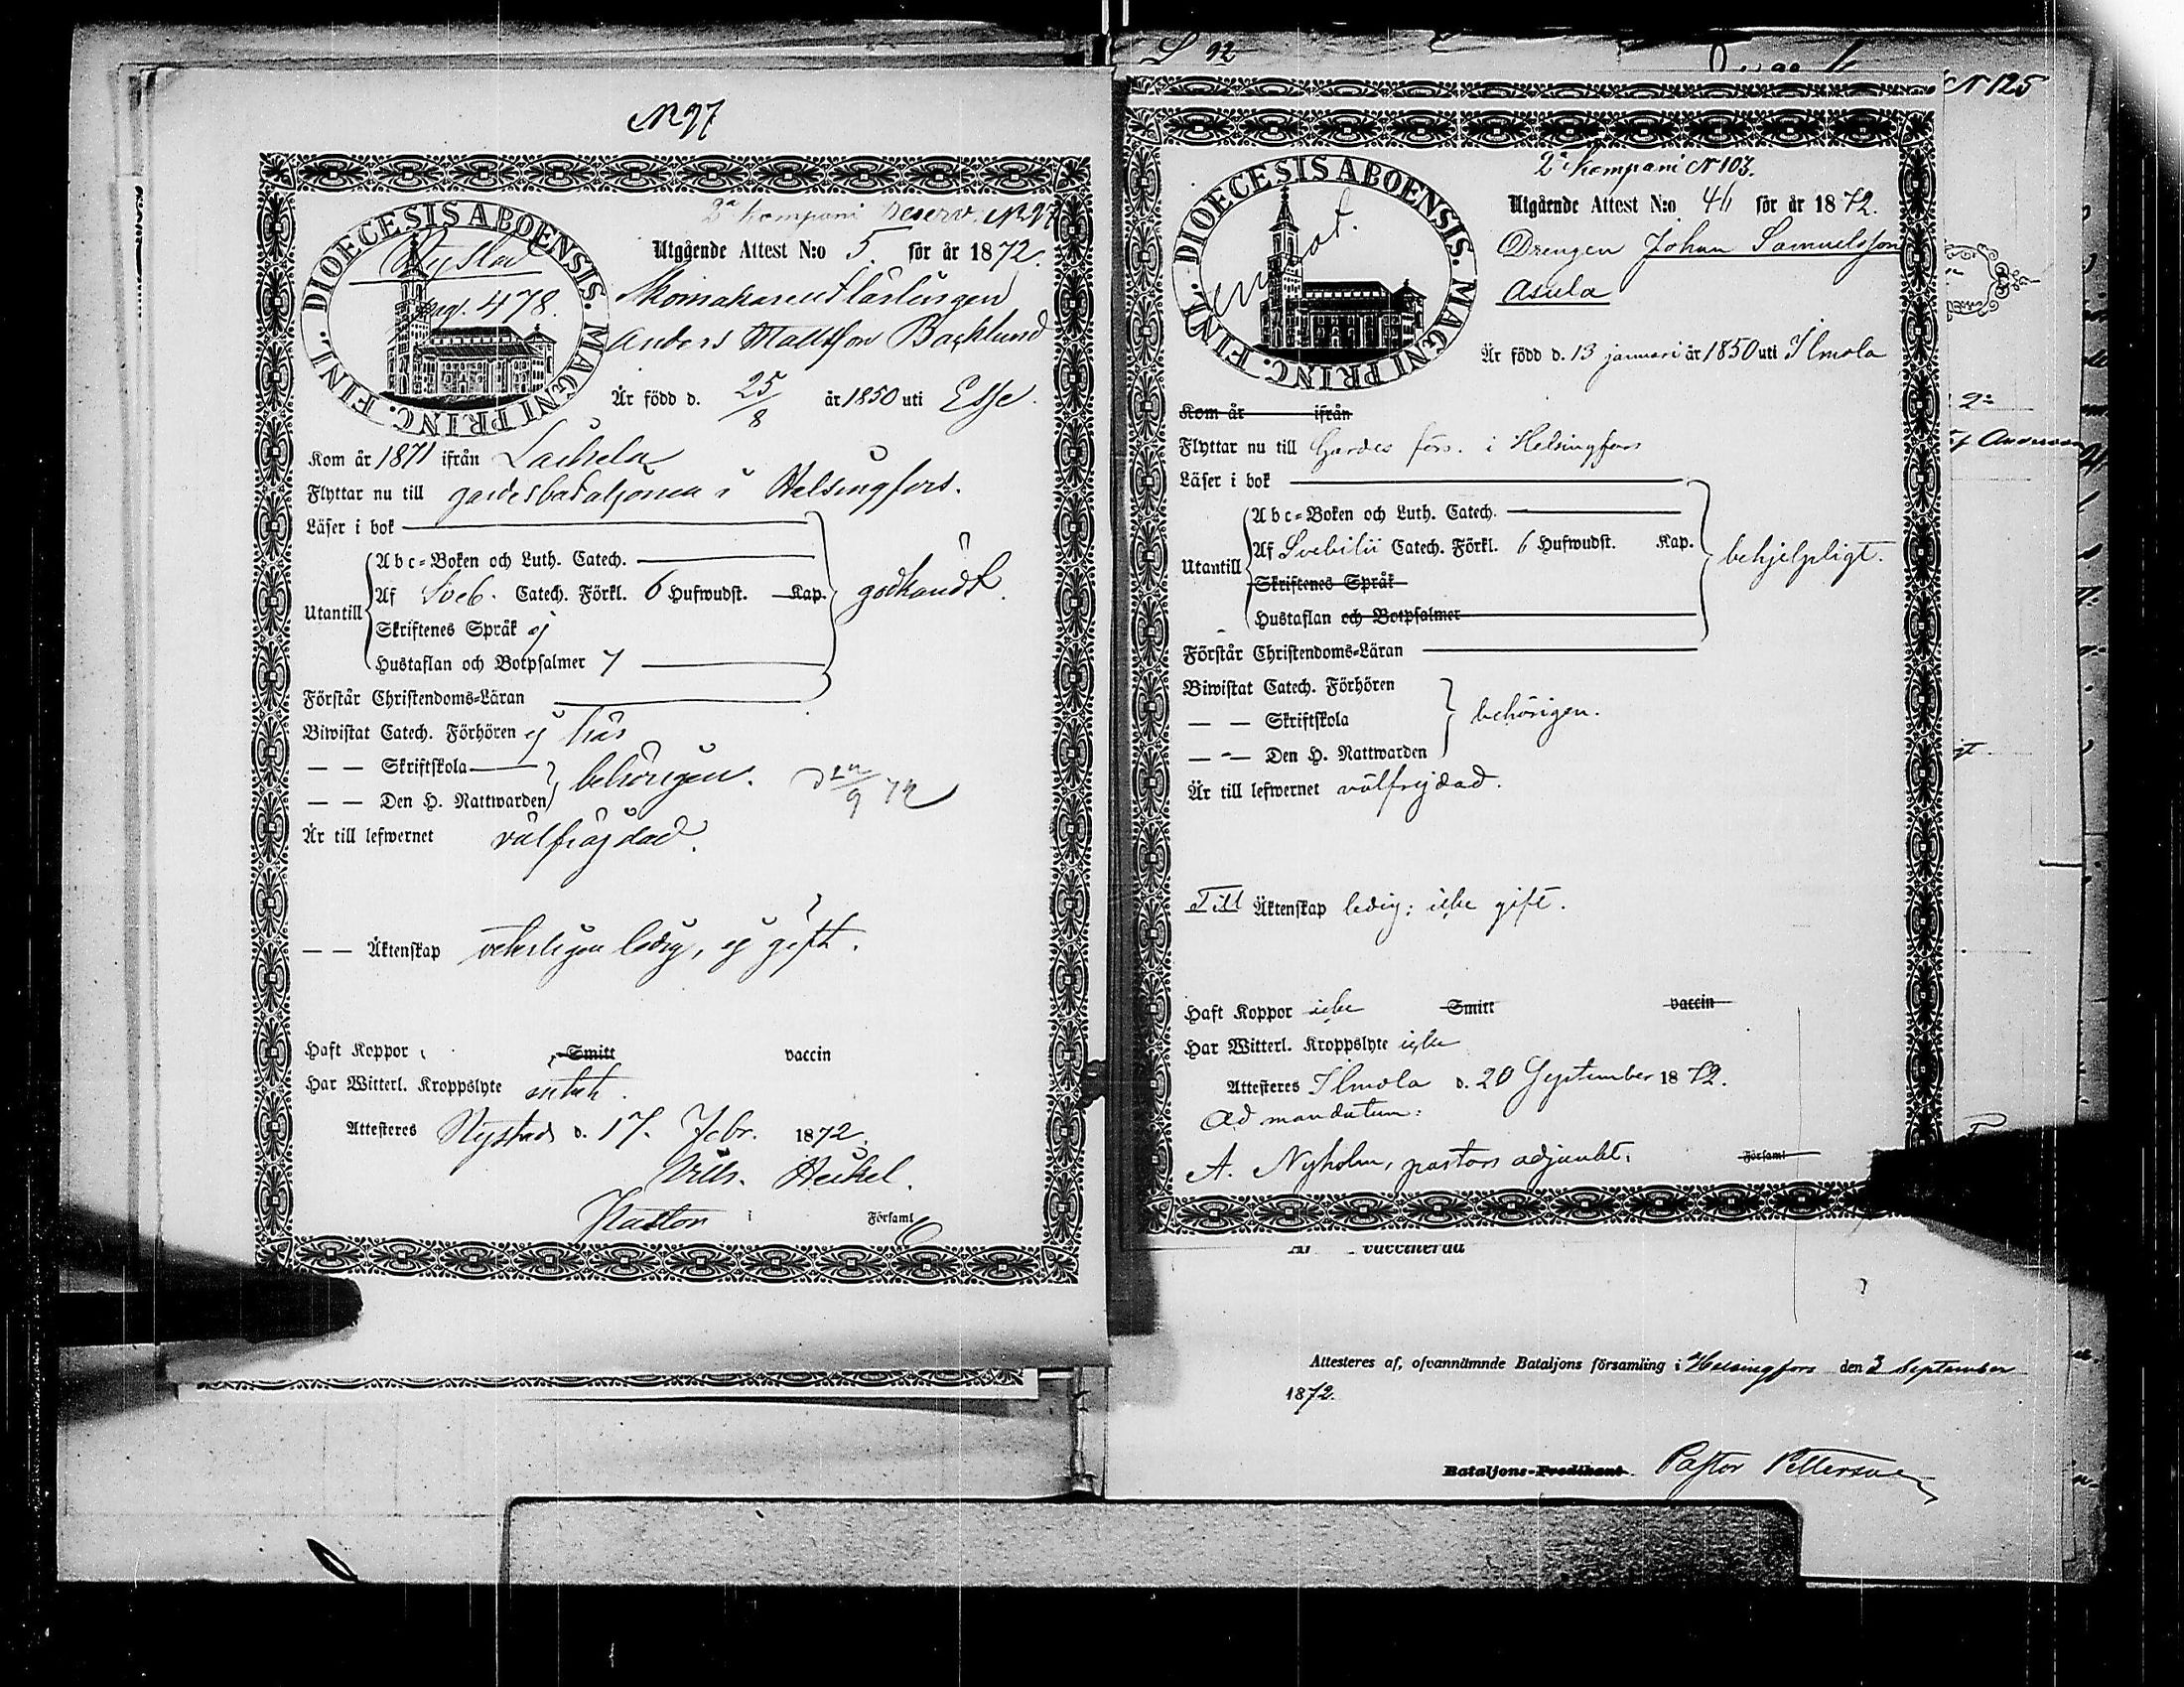 N 97
2ª Kompani Reserv. N 97
DIOECESIS ABOENSIS. MAGNI PRINC. FINL.
Nystad
pag. 478.
Utgående Attest N:o 5. för år 1872.
Skomakare
Anders Mattsson Backlund
Är född d. 25/8 år 1850 uti Esse.
Kom år 1871 ifrån
Flyttar nu till gardesbataljonen i Helsingfors.
Läser i bok
Utantill
Abc-Boken och Luth. Catech.
Af Sveb. Catech. Förkl. 6 Hufwudst. Kap.
Skriftenes Språk ej
Hustaflan och Botpsalmer 7
godkändt.
Förstår Christendoms-Läran
Biwistat Catech. Förhören ej här
— — Skriftskola
— — Den H. Nattwarden
behörigen.
Är till lefwernet välfräjdad.
— — Äktenskap veterligen ledig, ej gift.
Haft Koppor Smitt vaccin
Har Witterl. Kroppslyte intet.
Attesteres Nystad d. 17. Febr. 1872.
Wilh. Heikel.
Pastor i Församl
N 125
2ª Kompani N 103.
DIOECESIS ABOENSIS. MAGNI PRINC. FINL.
Utgående Attest N:o för år 1872.
Drengen Johan Samuelsson
Asula
Är född d. 13 januari år 1850 uti Ilmola
Kom år ifrån
Flyttar nu till Gardes förs. i Helsingfors
Läser i bok
Utantill
Abc-Boken och Luth. Catech.
Af Svebilii Catech. Förkl. 6 Hufwudst. Kap.
Skriftenes Språk
Hustaflan och Botpsalmer
behjelpligt.
Förstår Christendoms-Läran
Biwistat Catech. Förhören
— — Skriftskola
— — Den H. Nattwarden
behörigen.
Är till lefwernet välfrejdad.
Till Äktenskap ledig; icke gift.
Haft Koppor icke Smitt vaccin
Har Witterl. Kroppslyte icke
Attesteres Ilmola d. 20 September 1872.
Ad mandatum:
A. Nyholm, pastors adjunkt. Församl
vaccinerad
Attesteres af, ofvannämnde Bataljons församling i Helsingfors den 3 September
1872.
Bataljons-Predikant. Pastor